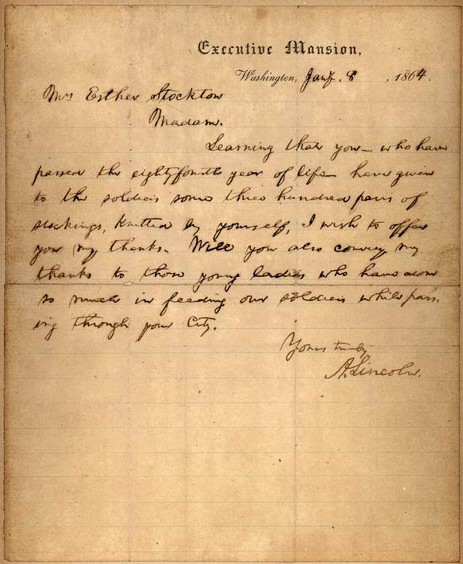 Executive Mansion,
Washington, Jany. 8, 1864.
Mrs Esther Stockton
Madam.
Learning that you— who have
passed the eighty fourth year of life— have given
to the soldiers some three hundred pairs of
stockings, knitted by yourself, I wish to offer
you my thanks. Will you also convey my
thanks to those young ladies who have done
so much in feeding our soldiers while pass-
ing through your City.
Yours truly
A. Lincoln.